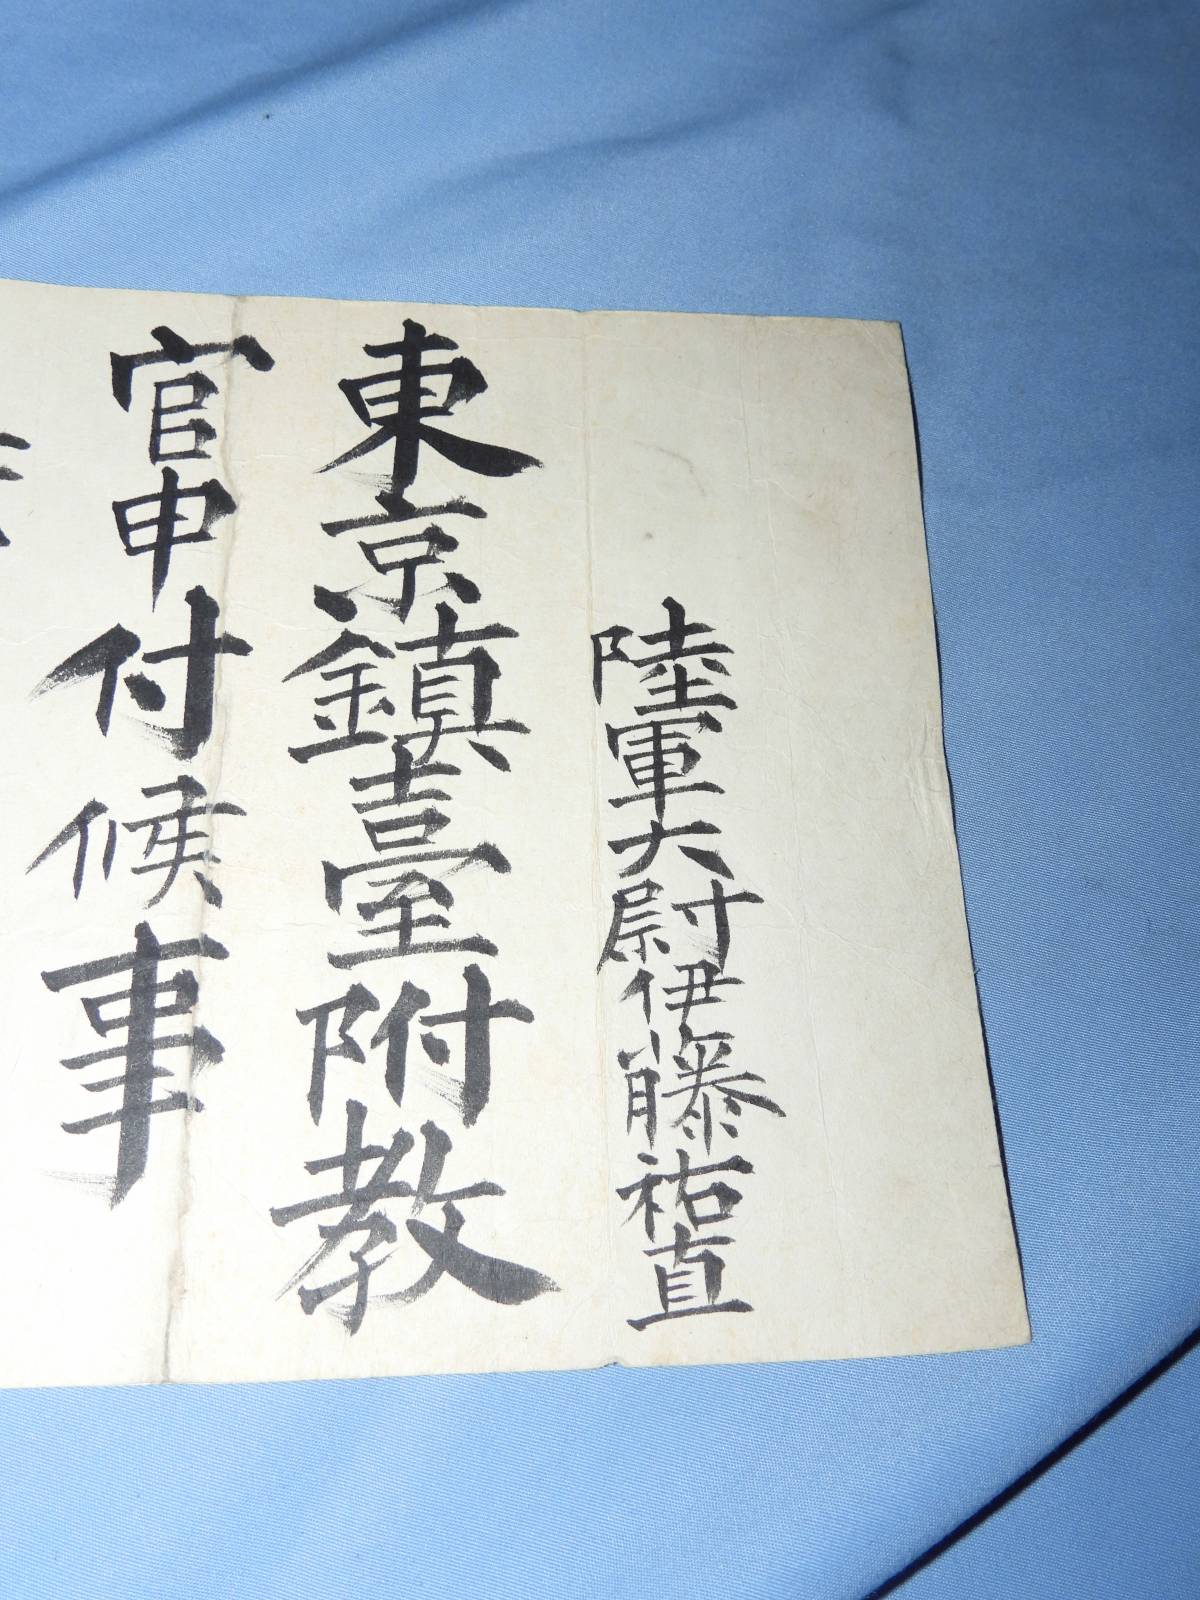 陸軍大尉伊藤祐直
東京鎮臺附教
官申付候事